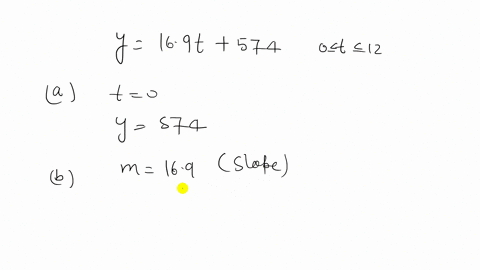 y = 16.9t + 574 0≤t ≤12
(a) t = 0
y = 574
(b) m = 16.9 (Slope)